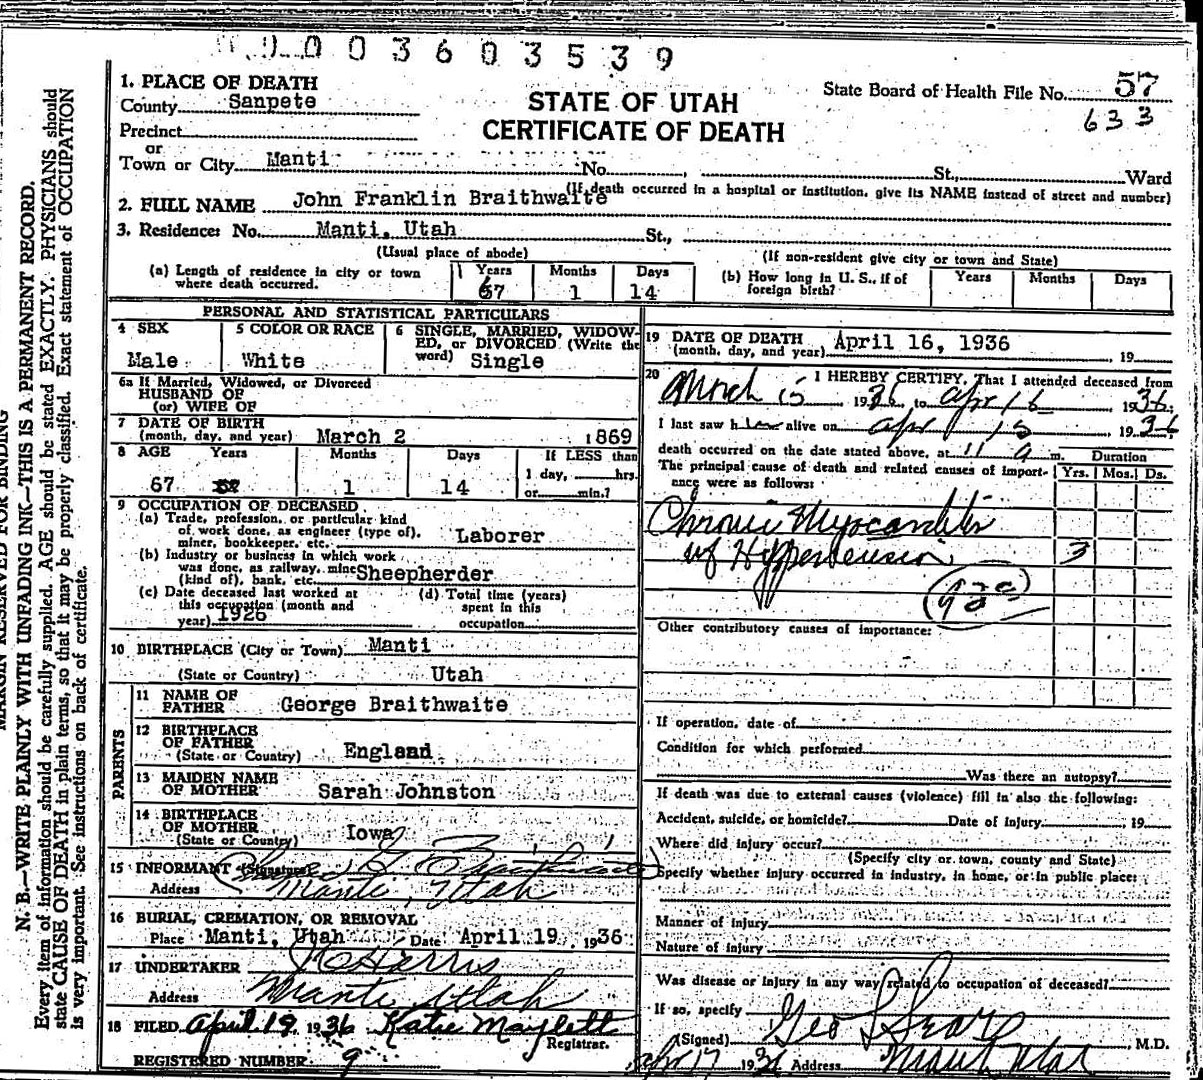 0 0 0 3 6 0 3 5 3 9
1. PLACE OF DEATH
County Sanpete
Precinct
or
Town or City Manti No. , St., Ward
STATE OF UTAH
CERTIFICATE OF DEATH
State Board of Health File No. 57
633
(If death occurred in a hospital or institution, give its NAME instead of street and number)
2. FULL NAME John Franklin Braithwaite
3. Residence: No. Manti, Utah St.,
(Usual place of abode) (If non-resident give city or town and State)
(a) Length of residence in city or town where death occurred. Years 67 Months 1 Days 14
(b) How long in U. S., if of foreign birth? Years Months Days
PERSONAL AND STATISTICAL PARTICULARS
4 SEX Male
5 COLOR OR RACE White
6 SINGLE, MARRIED, WIDOW-
ED, or DIVORCED (Write the
word) Single
6a If Married, Widowed, or Divorced
HUSBAND OF
(or) WIFE OF
7 DATE OF BIRTH
(month, day, and year) March 2 1869
8 AGE Years Months Days If LESS than
67 1 14 1 day, hrs.
or min.?
9 OCCUPATION OF DECEASED
(a) Trade, profession, or particular kind
of work done, as engineer (type of),
miner, bookkeeper, etc. Laborer
(b) Industry or business in which work
was done, as railway, mine
(kind of), bank, etc. Sheepherder
(c) Date deceased last worked at
this occupation (month and
year) 1926
(d) Total time (years)
spent in this
occupation
10 BIRTHPLACE (City or Town) Manti
(State or Country) Utah
PARENTS
11 NAME OF
FATHER George Braithwaite
12 BIRTHPLACE
OF FATHER
(State or Country) England
13 MAIDEN NAME
OF MOTHER Sarah Johnston
14 BIRTHPLACE
OF MOTHER
(State or Country) Iowa
15 INFORMANT (Signature) Braithwaite
Address Manti, Utah
16 BURIAL, CREMATION, OR REMOVAL
Place Manti, Utah Date April 19 1936
17 UNDERTAKER Harris
Address Manti Utah
18 FILED April 19 1936 Katie Maylett
Registrar.
REGISTERED NUMBER 9
19 DATE OF DEATH
(month, day, and year) April 16, 1936 , 19
20 I HEREBY CERTIFY, That I attended deceased from
March 15 1936 to Apr 16 , 1936;
I last saw h alive on Apr 15 , 1936
death occurred on the date stated above, at 11 a m. Duration
The principal cause of death and related causes of import-
ance were as follows: Yrs. Mos. Ds.
Chronic Myocarditis
of Hypertension 3
Other contributory causes of importance:
If operation, date of
Condition for which performed
Was there an autopsy?
If death was due to external causes (violence) fill in also the following:
Accident, suicide, or homicide? Date of injury 19
Where did injury occur?
(Specify city or town, county and State)
Specify whether injury occurred in industry, in home, or in public place:
Manner of injury
Nature of injury
Was disease or injury in any way related to occupation of deceased?
If so, specify
(Signed) Geo L Sears M.D.
Apr 17 1936 Address Manti Utah
MARGIN RESERVED FOR BINDING
N. B.—WRITE PLAINLY WITH UNFADING INK—THIS IS A PERMANENT RECORD.
Every item of information should be carefully supplied. AGE should be stated EXACTLY. PHYSICIANS should
state CAUSE OF DEATH in plain terms, so that it may be properly classified. Exact statement of OCCUPATION
is very important. See instructions on back of certificate.